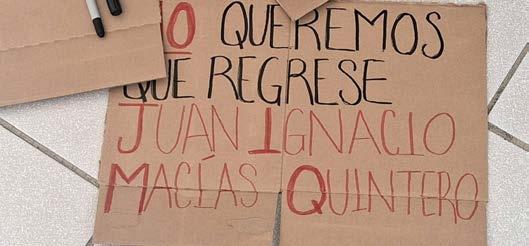 NO QUEREMOS
QUE REGRESE
JUAN IGNACIO
MACÍAS QUINTERO